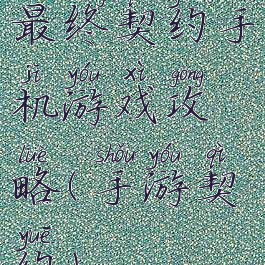 最终契约手
jī yóu xì gōng
机游戏攻
lüè shǒu yóu qì
略(手游契
yuē
约)